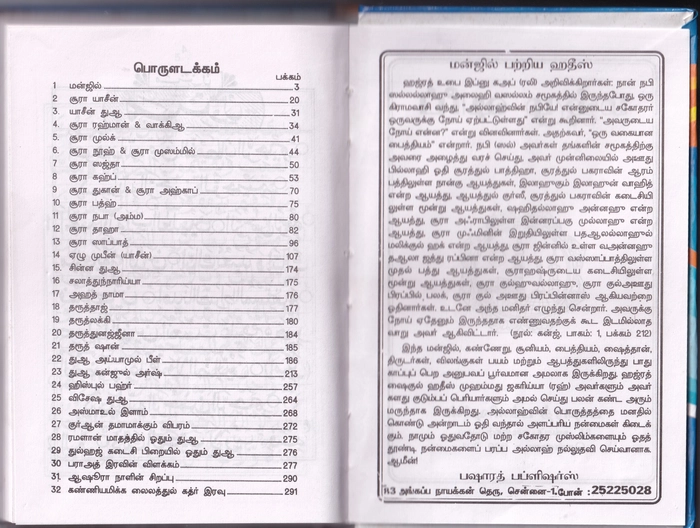 பொருளடக்கம்
பக்கம்
1 மன்ஜில் 3
2 சூரா யாசீன் 20
3. யாசீன் துஆ 31
4. சூரா ரஹ்மான் & வாக்கிஆ 34
5. சூரா முல்க் 41
6. சூரா நூஹ் & சூரா முஸம்மில் 44
7 சூரா ஸஜ்தா 50
8 சூரா கஹ்ப் 53
9 சூரா துகான் & சூரா அஹ்காப் 70
10 சூரா பத்ஹ் 75
11 சூரா நபா (அம்ம) 80
12 சூரா தாஹா 82
13 சூரா ஸாப்பாத் 96
14 ஏழு முபீன் (யாசீன்) 107
15. சின்ன துஆ 174
16 சலாத்துந்நாரிய்யா 175
17 அஹத் நாமா 176
18 தருத்தாஜ் 177
19 தருத்லக்கி 180
20 தருத்துனஜ்ஜீனா 184
21 தருத் ஷான் 185
22 துஆ அய்யாமுல் பீள் 186
23 துஆ கன்ஜுல் அர்ஷ் 213
24 ஹிஸ்புல் பஹ்ர் 257
25 விசேஷ துஆ 264
26 அஸ்மாஉல் இனாம் 268
27 குர்ஆன் தமாமாக்கும் விபரம் 272
28 ரமளான் மாதத்தில் ஓதும் துஆ 275
29 துல்ஹஜ் கடைசி பிறையில் ஓதும் துஆ 276
30 பராஅத் இரவின் விளக்கம் 277
31. ஆஷூரா நாளின் சிறப்பு 290
32 கண்ணியமிக்க லைலத்துல் கத்ர் இரவு 291
மன்ஜில் பற்றிய ஹதீஸ்
ஹஜ்ரத் உபை இப்னு கஅப் (ரலி) அறிவிக்கிறார்கள்: நான் நபி
ஸல்லல்லாஹு அலைஹி வஸல்லம் சமூகத்தில் இருந்தபோது, ஒரு
கிராமவாசி வந்து, "அல்லாஹ்வின் நபியே! என்னுடைய சகோதரர்
ஒருவருக்கு நோய் ஏற்பட்டுள்ளது" என்று கூறினார். "அவருடைய
நோய் என்ன?" என்று வினவினார்கள். அதற்கவர், "ஒரு வகையான
பைத்தியம்" என்றார். நபி (ஸல்) அவர்கள் தங்களின் சமூகத்திற்கு
அவரை அழைத்து வரச் செய்து, அவர் முன்னிலையில் அஊது
பில்லாஹி ஓதி சூரத்துல் பாத்திஹா, சூரத்துல் பகராவின் ஆரம்
பத்திலுள்ள நான்கு ஆயத்துகள், இலாஹுகும் இலாஹுன் வாஹித்
என்ற ஆயத்து, ஆயத்துல் குர்ஸீ, சூரத்துல் பகராவின் கடைசியி
லுள்ள மூன்று ஆயத்துகள், ஷஹிதல்லாஹு அன்னஹு என்ற
ஆயத்து, சூரா அஃராபிலுள்ள இன்னரப்பகு முல்லாஹு என்ற
ஆயத்து, சூரா முஃமினின் இறுதியிலுள்ள பதஆலல்லாஹுல்
மலிக்குல் ஹக் என்ற ஆயத்து, சூரா ஜின்னில் உள்ள வஅன்னஹு
தஆலா ஜத்து ரப்பினா என்ற ஆயத்து, சூரா வஸ்ஸாப்பாத்திலுள்ள
முதல் பத்து ஆயத்துகள், சூராஹஷ்ருடைய கடைசியிலுள்ள
மூன்று ஆயத்துகள், சூரா குல்ஹுவல்லாஹு, சூரா குல்அஊது
பிரப்பில் பலக், சூரா குல் அஊது பிரப்பின்னாஸ் ஆகியவற்றை
ஓதினார்கள். உடனே அந்த மனிதர் எழுந்து சென்றார். அவருக்கு
நோய் ஏதேனும் இருந்ததாக எண்ணுவதற்குக் கூட இடமில்லாத
வாறு அவர் ஆகிவிட்டார். (நூல்: கன்ஜ், பாகம்: 1, பக்கம் 212)
இந்த மன்ஜில், கண்ணேறு, சூனியம், பைத்தியம், ஷைத்தான்,
திருடர்கள், விலங்குகள் பயம் மற்றும் ஆபத்துகளிலிருந்து பாது
காப்புப் பெற அனுபவப் பூர்வமான அமலாக இருக்கிறது. ஹஜ்ரத்
ஷைகுல் ஹதீஸ் முஹம்மது ஜகரிய்யா (ரஹ்) அவர்களும் அவர்
களது குடும்பப் பெரியார்களும் அமல் செய்து பலன் கண்ட அரும்
மருந்தாக இருக்கிறது. அல்லாஹ்வின் பொருத்தத்தை மனதில்
கொண்டு அன்றாடம் ஓதி வந்தால் அளப்பரிய நன்மைகள் கிடைக்
கும். நாமும் ஓதுவதோடு மற்ற சகோதர முஸ்லிம்களையும் ஓதத்
தூண்டி நன்மைகளைப் பரப்ப அல்லாஹ் நல்லுதவி செய்வானாக.
ஆமீன்!
பஷாரத் பப்ளிஷர்ஸ்
அங்கப்ப நாயக்கன் தெரு, சென்னை-1.போன் : 25225028